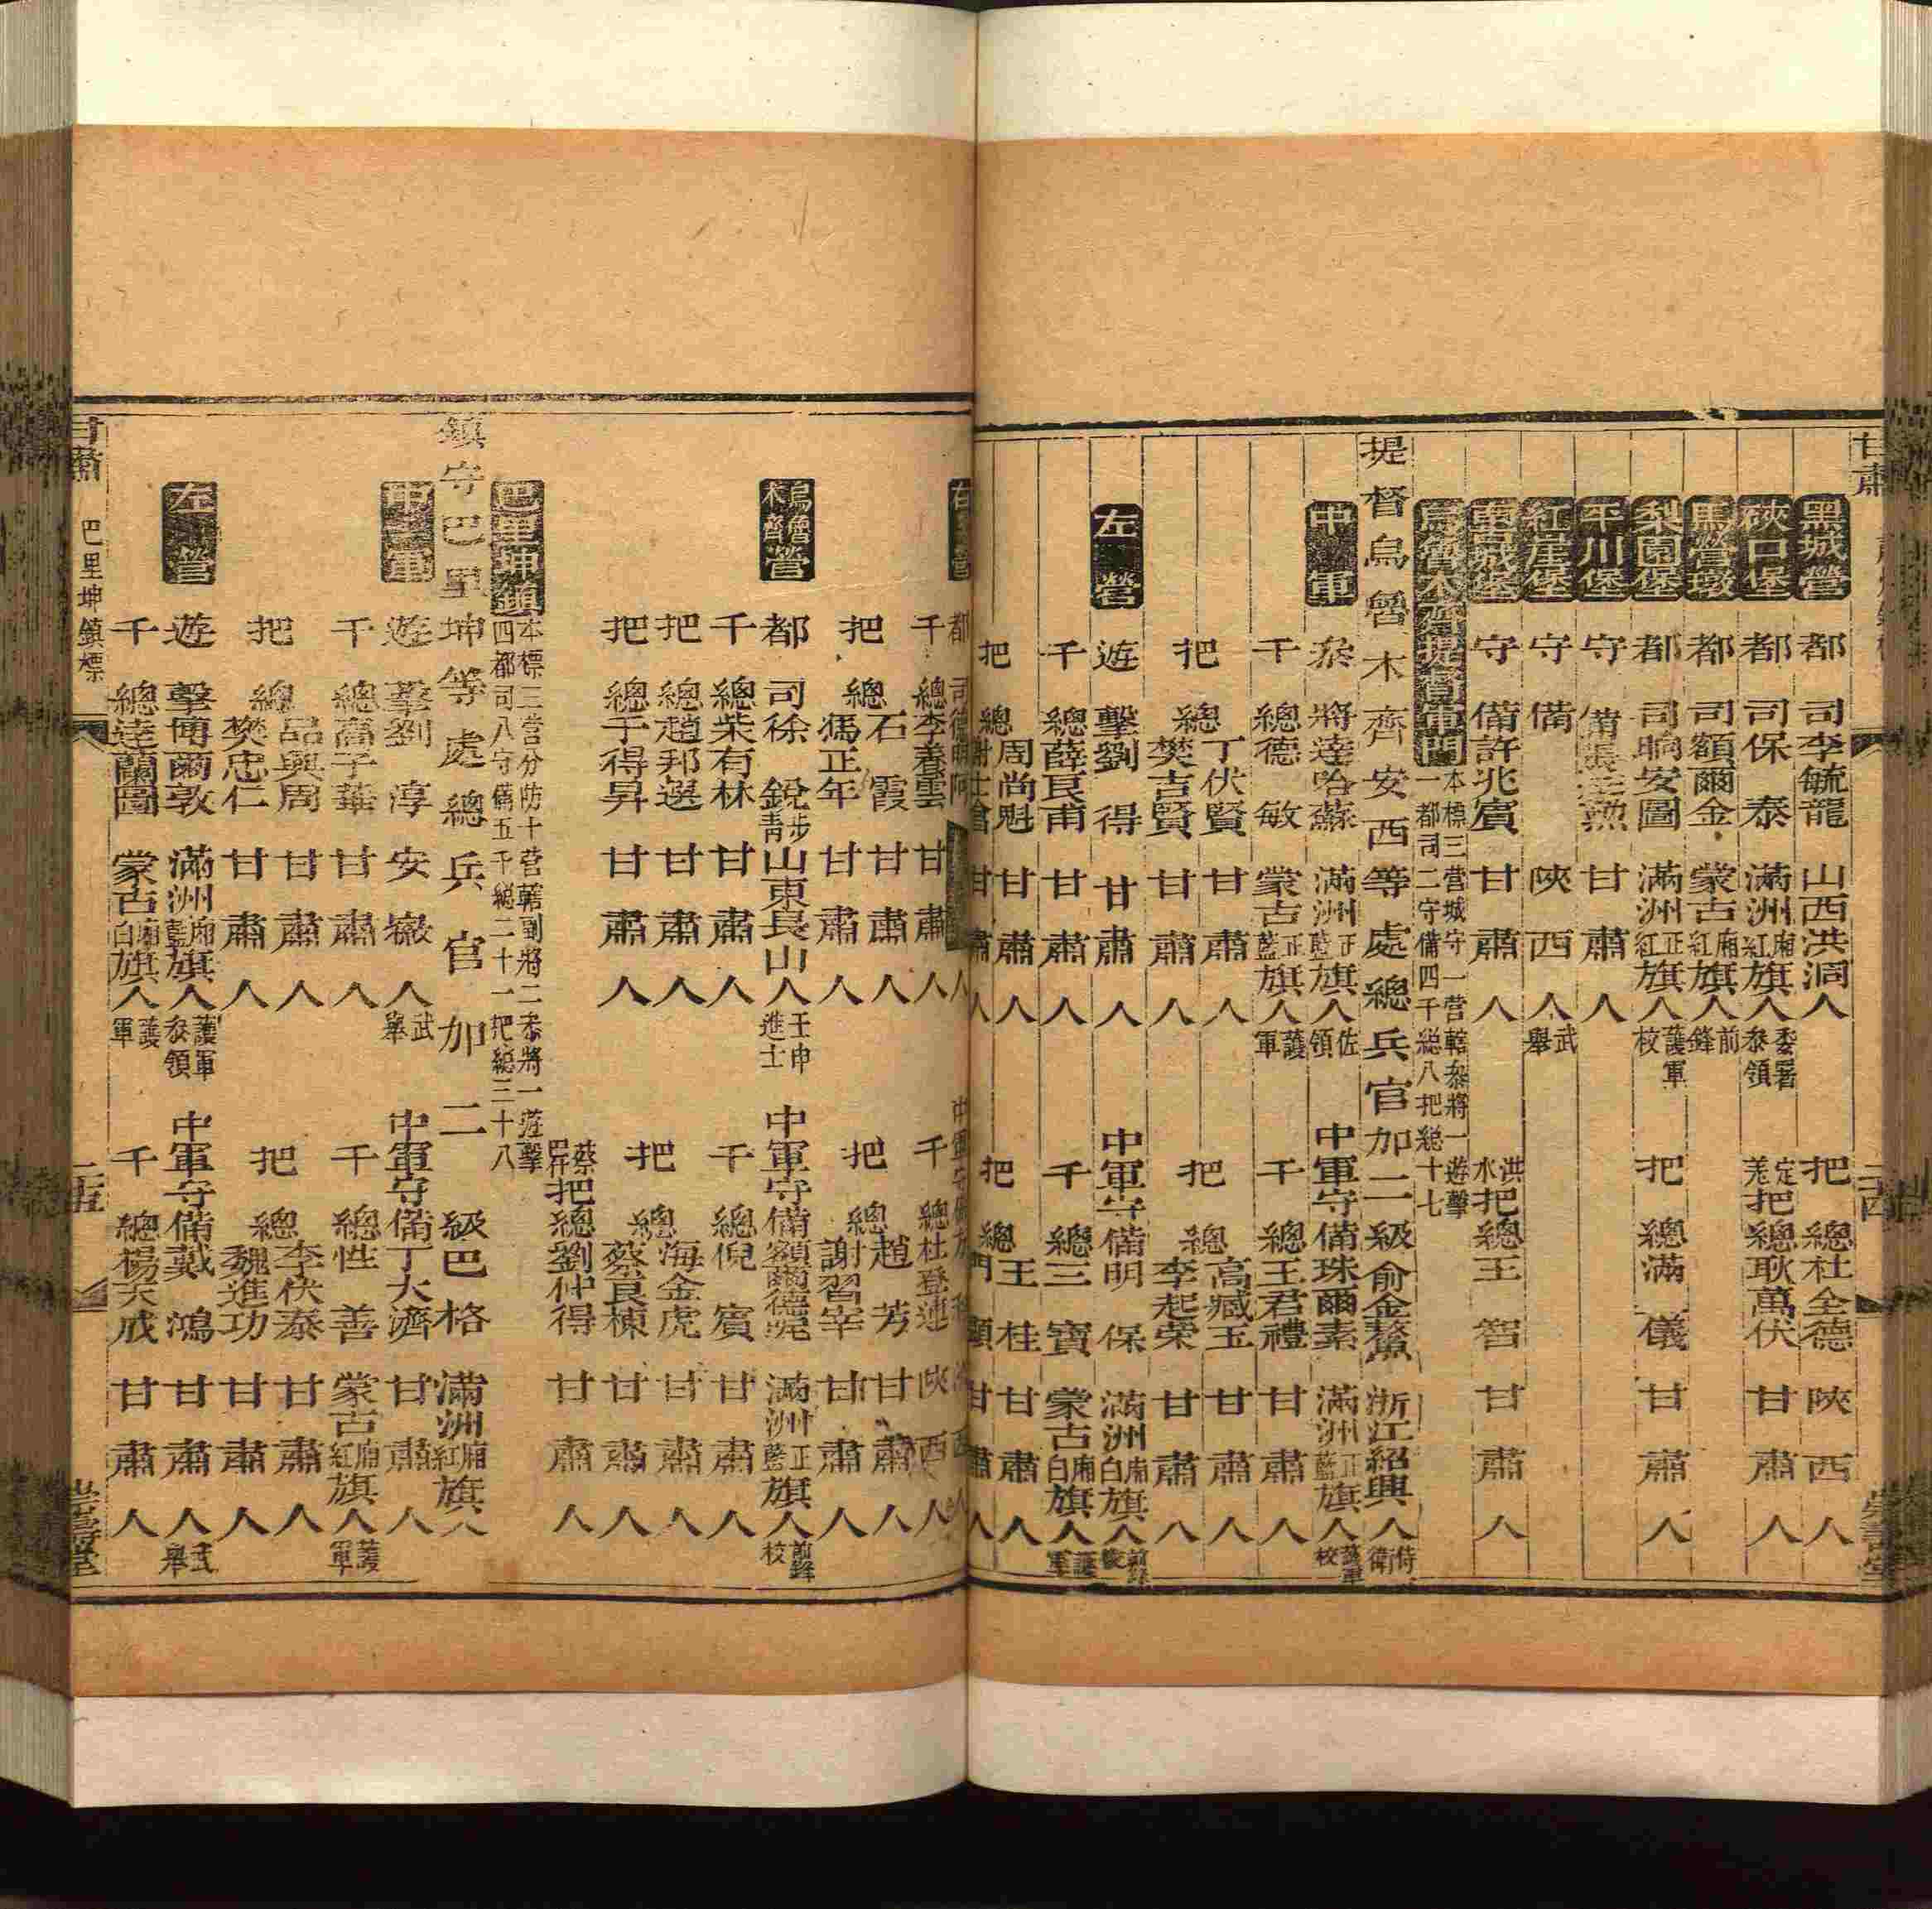 甘肅
黑城營 都司李毓龍 山西洪洞人 把總杜全德 陝西人
硤口堡 都司保泰 滿洲廂紅旗人委署叅領 定羗把總耿萬伏 甘肅人
馬營墩 都司額爾金 蒙古廂紅旗人前鋒
梨園堡 都司晌安圖 滿洲正紅旗人護軍校 把總滿儀 甘肅人
平川堡 守備 甘肅人
紅崖堡 守備 陝西人武舉
守備許兆賓 甘肅人 洪水把總王智 甘肅人
烏魯木齊提督軍門 本標三營城守一營轄叅將一遊擊一都司二守備四千総八把総十七
提督烏魯木齊安西等處總兵官加二級俞金鰲 浙江紹興人侍衛
中軍 叅將達哈蘇 滿洲正藍旗人佐領 中軍守備珠爾素 滿洲正藍旗人護軍校
千總德敏 蒙古正藍旗人護軍 千總王君禮 甘肅人
把總丁伏賢 甘肅人 把總高臧玉 甘肅人
樊吉賢 甘肅人 李起荣 甘肅人
左營 遊擊劉得 甘肅人 中軍守備明保 滿洲廂白旗人前鋒校
千總薛良甫 甘肅人 千總三寶 蒙古廂白旗人護軍
把總周尚魁 甘肅人 把總王桂 甘肅人
甘肅人 甘肅人
右營 都司德明阿 人 中軍守備
千總李養雲 甘肅人 千總杜登連 陝西人
把總石霞 甘肅人 把總趙芳 甘肅人
馮正年 甘肅人 謝習宰 甘肅人
烏魯木齊營 都司徐銳 山東長山人壬申進士 中軍守備額爾德呢 滿洲正藍旗人前鋒校
千總柴有林 甘肅人 千總倪賓 甘肅人
把總趙邦選 甘肅人 把總海金虎 甘肅人
把總于得昇 甘肅人 蔡良棟 甘肅人
把總劉仲得 甘肅人
巴里坤鎮 本標三營分防十營轄副將二叅將一遊擊四都司八守備五千総二十一把総三十八
鎮守巴里坤等處總兵官加二級巴格 滿洲廂紅旗人
中軍 遊擊劉淳 安徽人武舉 中軍守備丁大濟 甘肅人
千總高子華 甘肅人 千總性善 蒙古廂紅旗人護軍
把總品興周 甘肅人 把總李伏泰 甘肅人
樊忠仁 甘肅人 魏進功 甘肅人
左營 遊擊博爾敦 滿洲廂藍旗人護軍叅領 中軍守備戴鴻 甘肅人武舉
千總達蘭圖 蒙古廂白旗人護軍 千總楊天戒 甘肅人
甘肅 巴里坤鎮標 二十五